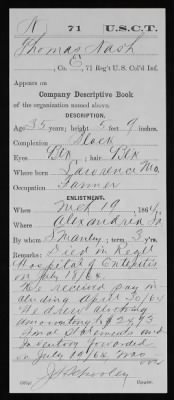 N 71 U.S.C.T.
Thomas Nash
, Co. E, 71 Reg't U. S. Col'd Inf.
Appears on
Company Descriptive Book
of the organization named above.
DESCRIPTION.
Age 35 years; height 5 feet 9 inches.
Complexion Black
Eyes Blk ; hair Blk
Where born Lawrence Mo.
Occupation Farmer
ENLISTMENT.
When Mch 19, 1864.
Where Alexandria La
By whom S Manly ; term 3 y'rs.
Remarks: Died in Regtl
Hospital of Enteritis
on July 18/64.
He received pay in-
cluding April 30/64
He drew clothing
amounting to $
Final Statements and
Inventory forwarded
on July 19/64
Schooley
Copyist.